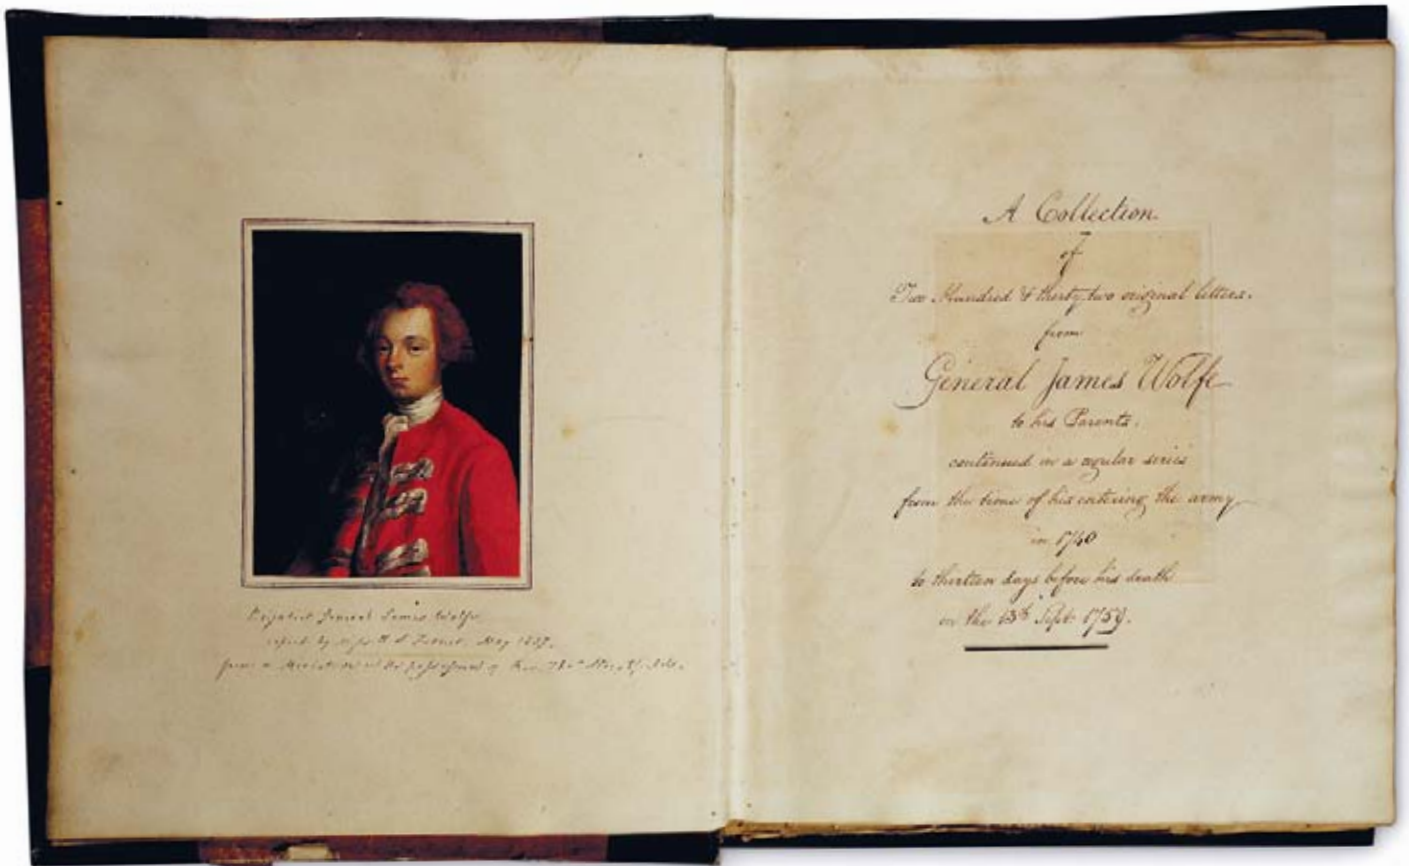 General James Wolfe
copied by
May 1837.
from a in the possession of
A Collection
of
Two Hundred & thirty two original letters.
from
General James Wolfe
to his Parents.
continued in a regular series
from the time of his entering the army
in 1740
to thirteen days before his death
on the 13th Sept. 1759.